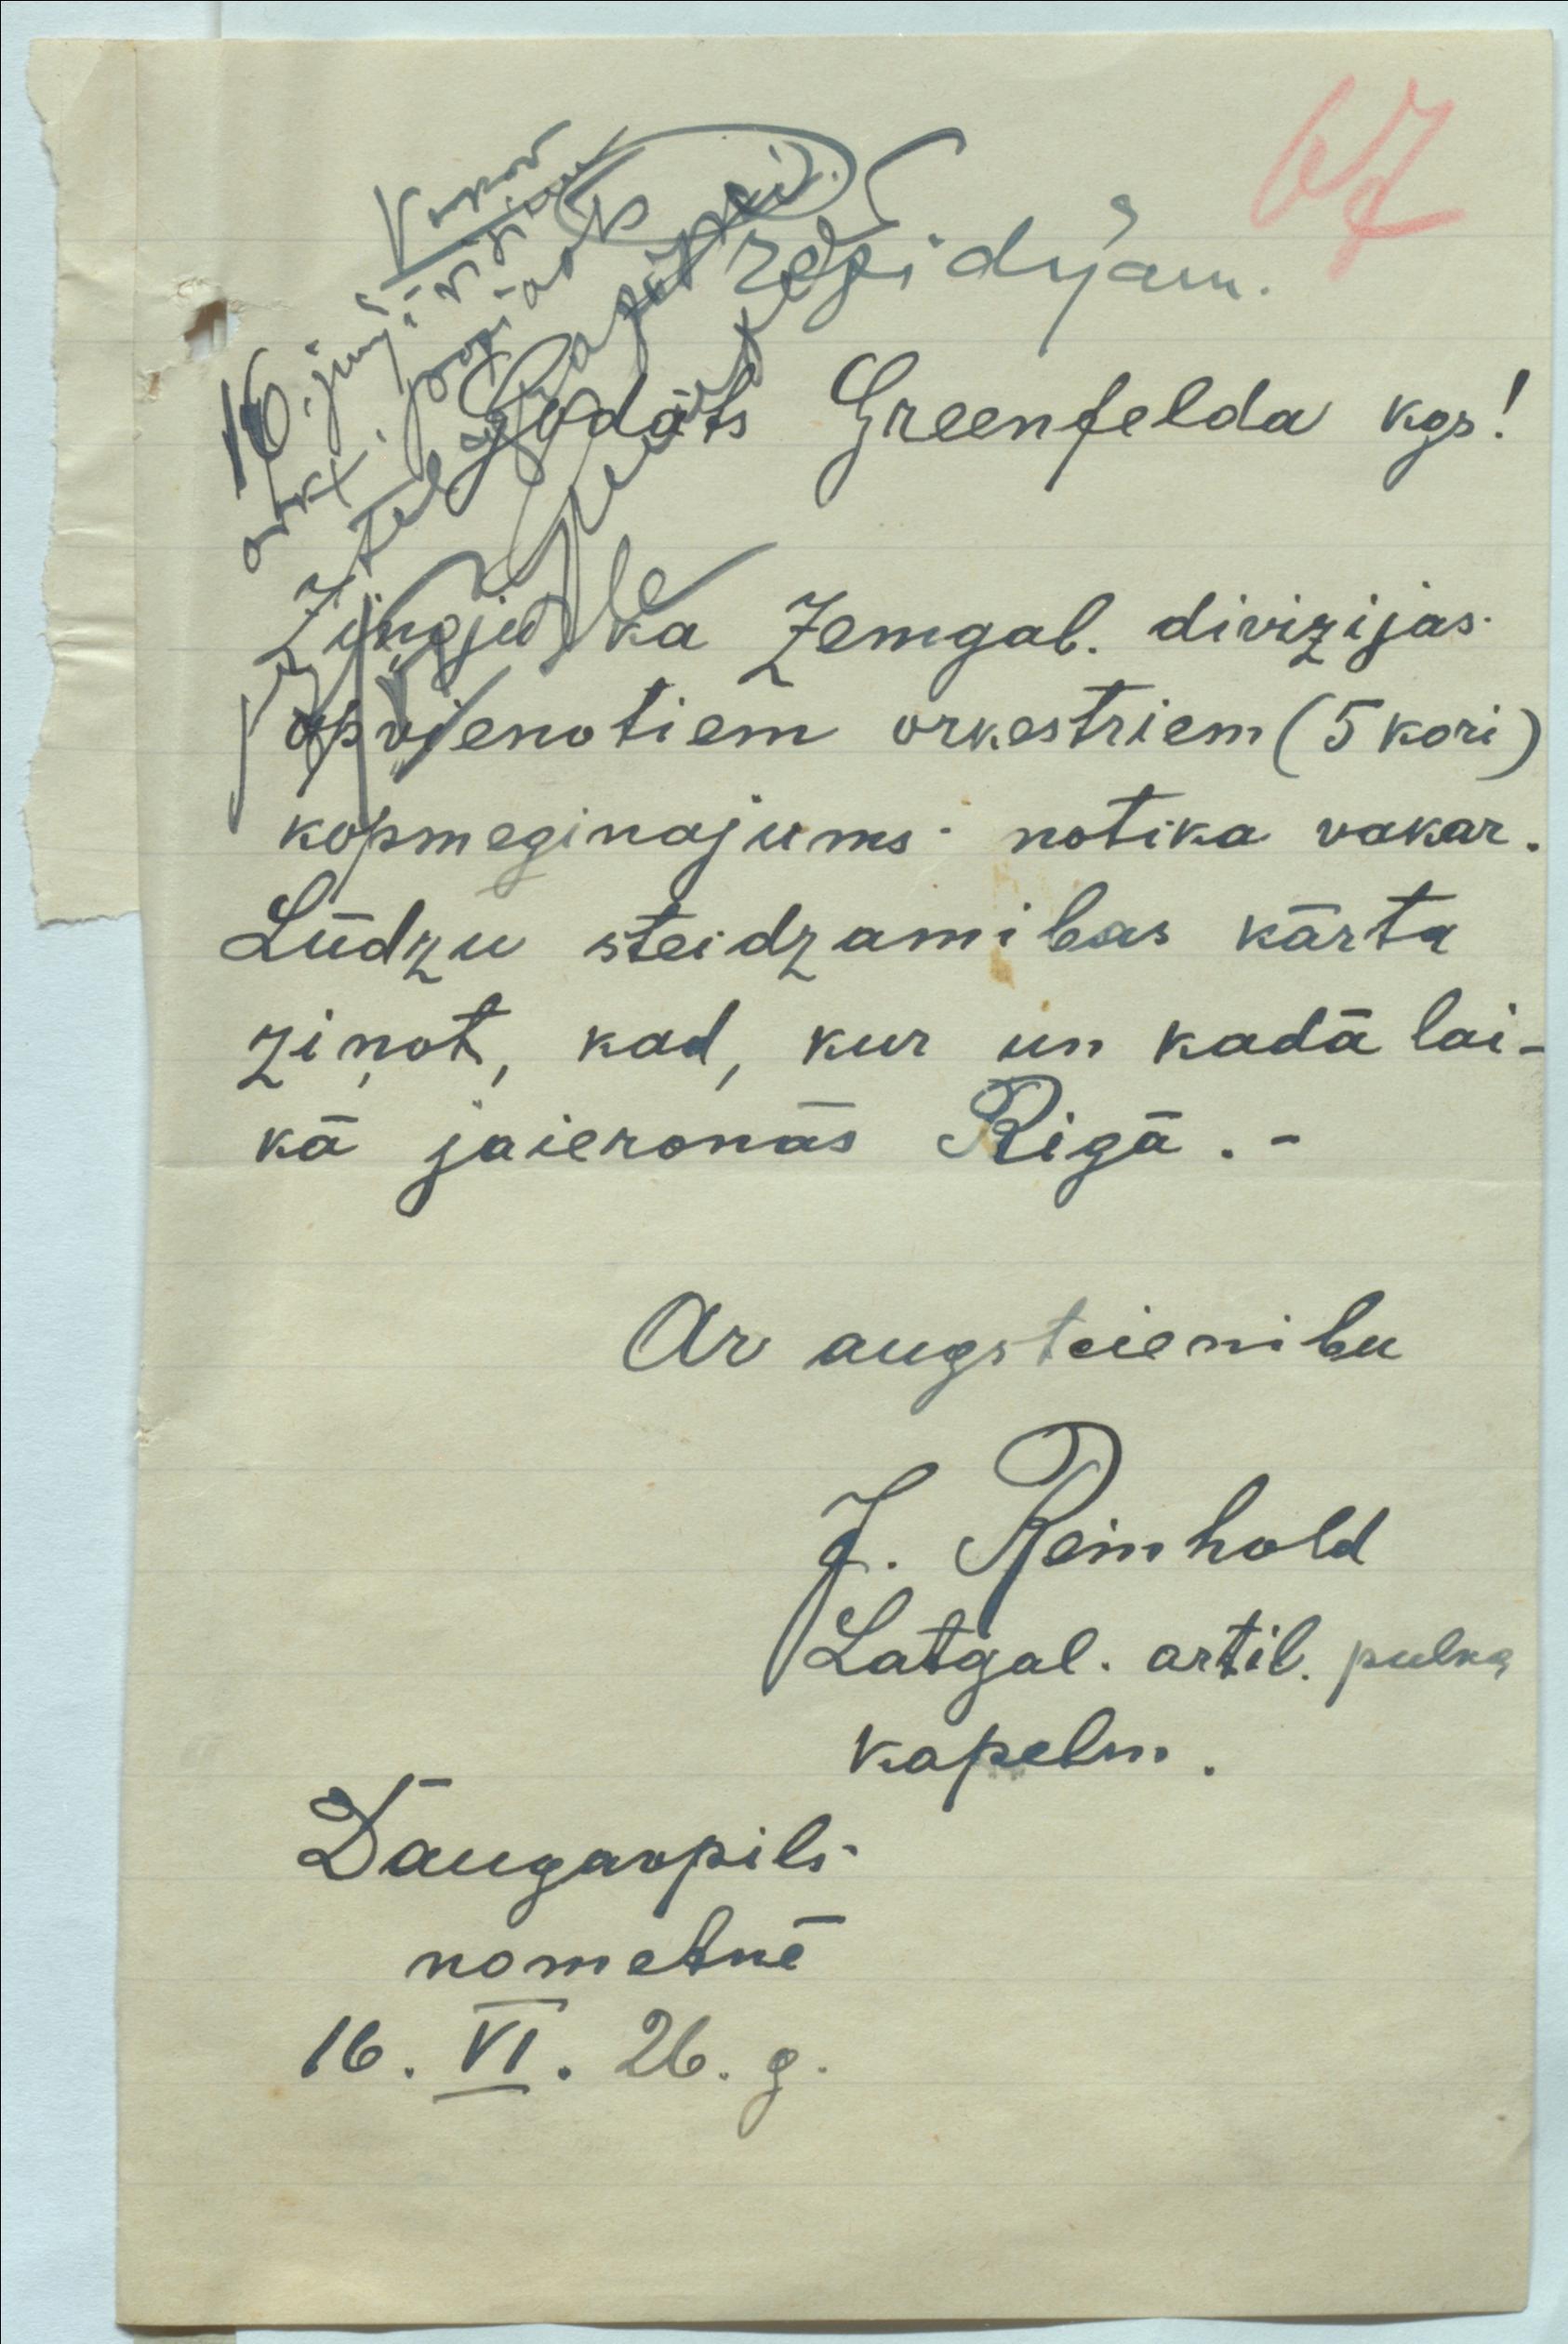 67
Godāts Greenfelda kgs!
Ziņoju ka Zemgal. divizijas
apvienotiem orkestriem (5 kori)
kopmeginajums notika vakar.
Lūdzu steidzamibas kārta
ziņot, kad, kur un kadā lai-
kā jaieronās Rigā. -
Ar augstcienibu
J. Reinhold
Latgal. artil. pulka
kapelm.
Daugavpils
nometnē
16. VI. 26. g.